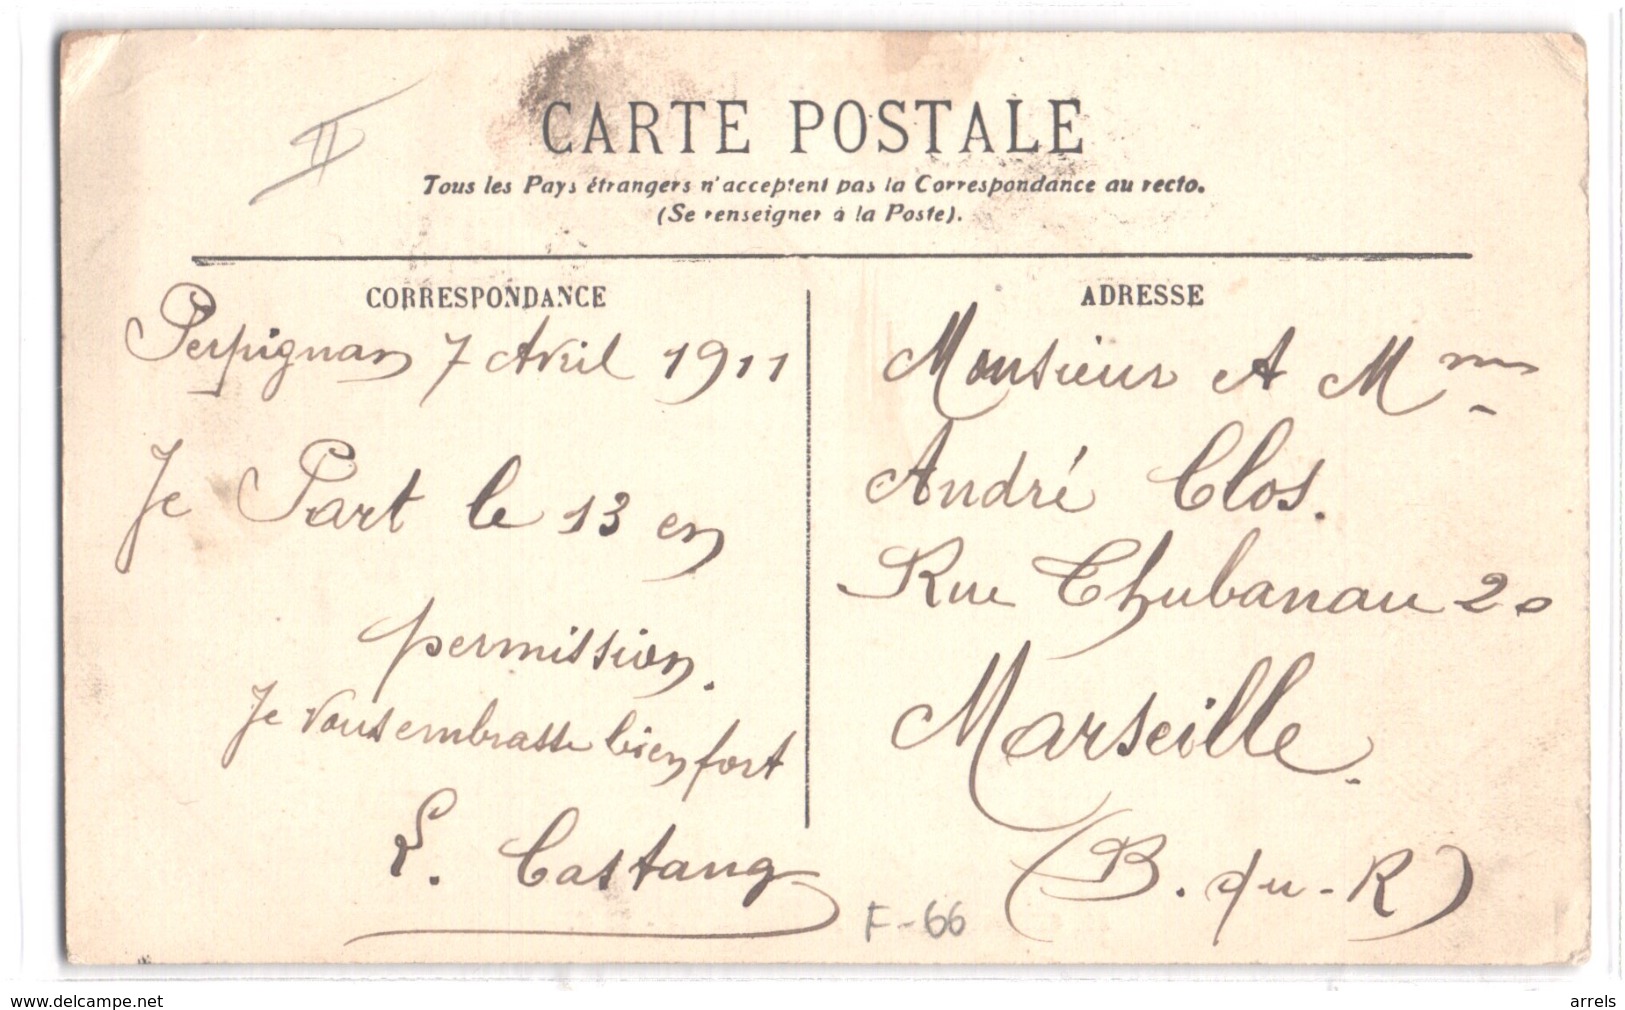 II
CARTE POSTALE
Tous les Pays étrangers n'acceptent pas la Correspondance au recto.
(Se renseigner à la Poste).
CORRESPONDANCE
Perpignan 7 Avril 1911
Je Part le 13 en
permission.
Je vous embrasse bien fort
L. Castang
ADRESSE
Monsieur et Mme
André Clos.
Rue Thubanau 20
Marseille.
(B. du-R)
F-66
www.delcampe.net
arrels